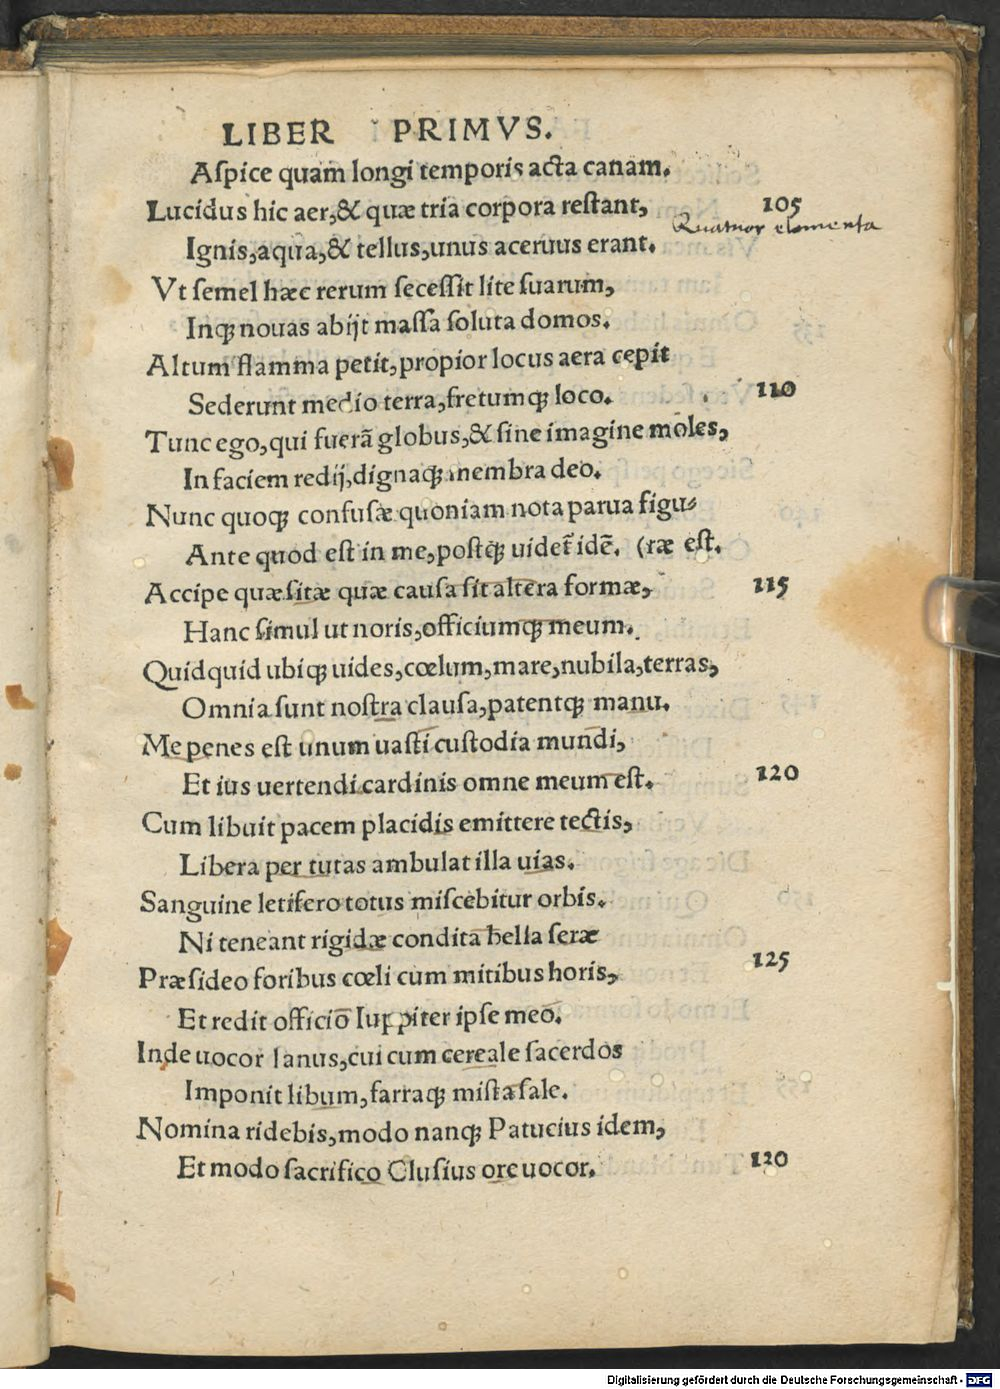 LIBER PRIMVS.
Aſpice quam longi temporis acta canam.
Lucidus hic aer,& quæ tria corpora reſtant, 105
Quatuor elementa
Ignis,aqua,& tellus,unus aceruus erant.
Vt ſemel hæc rerum ſeceſſit lite ſuarum,
Inqꝫ nouas abijt maſſa ſoluta domos.
Altum flamma petit,propior locus aera cepit
Sederunt medio terra,fretumqꝫ loco. 110
Tunc ego,qui fuerã globus,& ſine imagine moles,
In faciem redij,dignaqꝫ membra deo.
Nunc quoqꝫ confuſæ quoniam nota parua figu-
Ante quod eſt in me,poſtqꝫ uidet̃ idẽ. (ræ eſt.
Accipe quæſitæ quæ cauſa ſit altera formæ, 115
Hanc ſimul ut noris,officiumqꝫ meum.
Quidquid ubiqꝫ uides,cœlum,mare,nubila,terras,
Omnia ſunt noſtra clauſa,patentqꝫ manu.
Me penes eſt unum uaſti cuſtodia mundi,
Et ius uertendi cardinis omne meum eſt. 120
Cum libuit pacem placidis emittere tectis,
Libera per tutas ambulat illa uias.
Sanguine letifero totus miſcebitur orbis.
Ni teneant rigidæ condita bella ſeræ
Præſideo foribus cœli cum mitibus horis, 125
Et redit officio Iuppiter ipſe meo.
Inde uocor Ianus,cui cum cereale ſacerdos
Imponit libum,farraqꝫ miſta ſale.
Nomina ridebis,modo nanqꝫ Patucius idem,
Et modo ſacrifico Cluſius ore uocor. 120
Digitalisierung gefördert durch die Deutsche Forschungsgemeinschaft - DFG